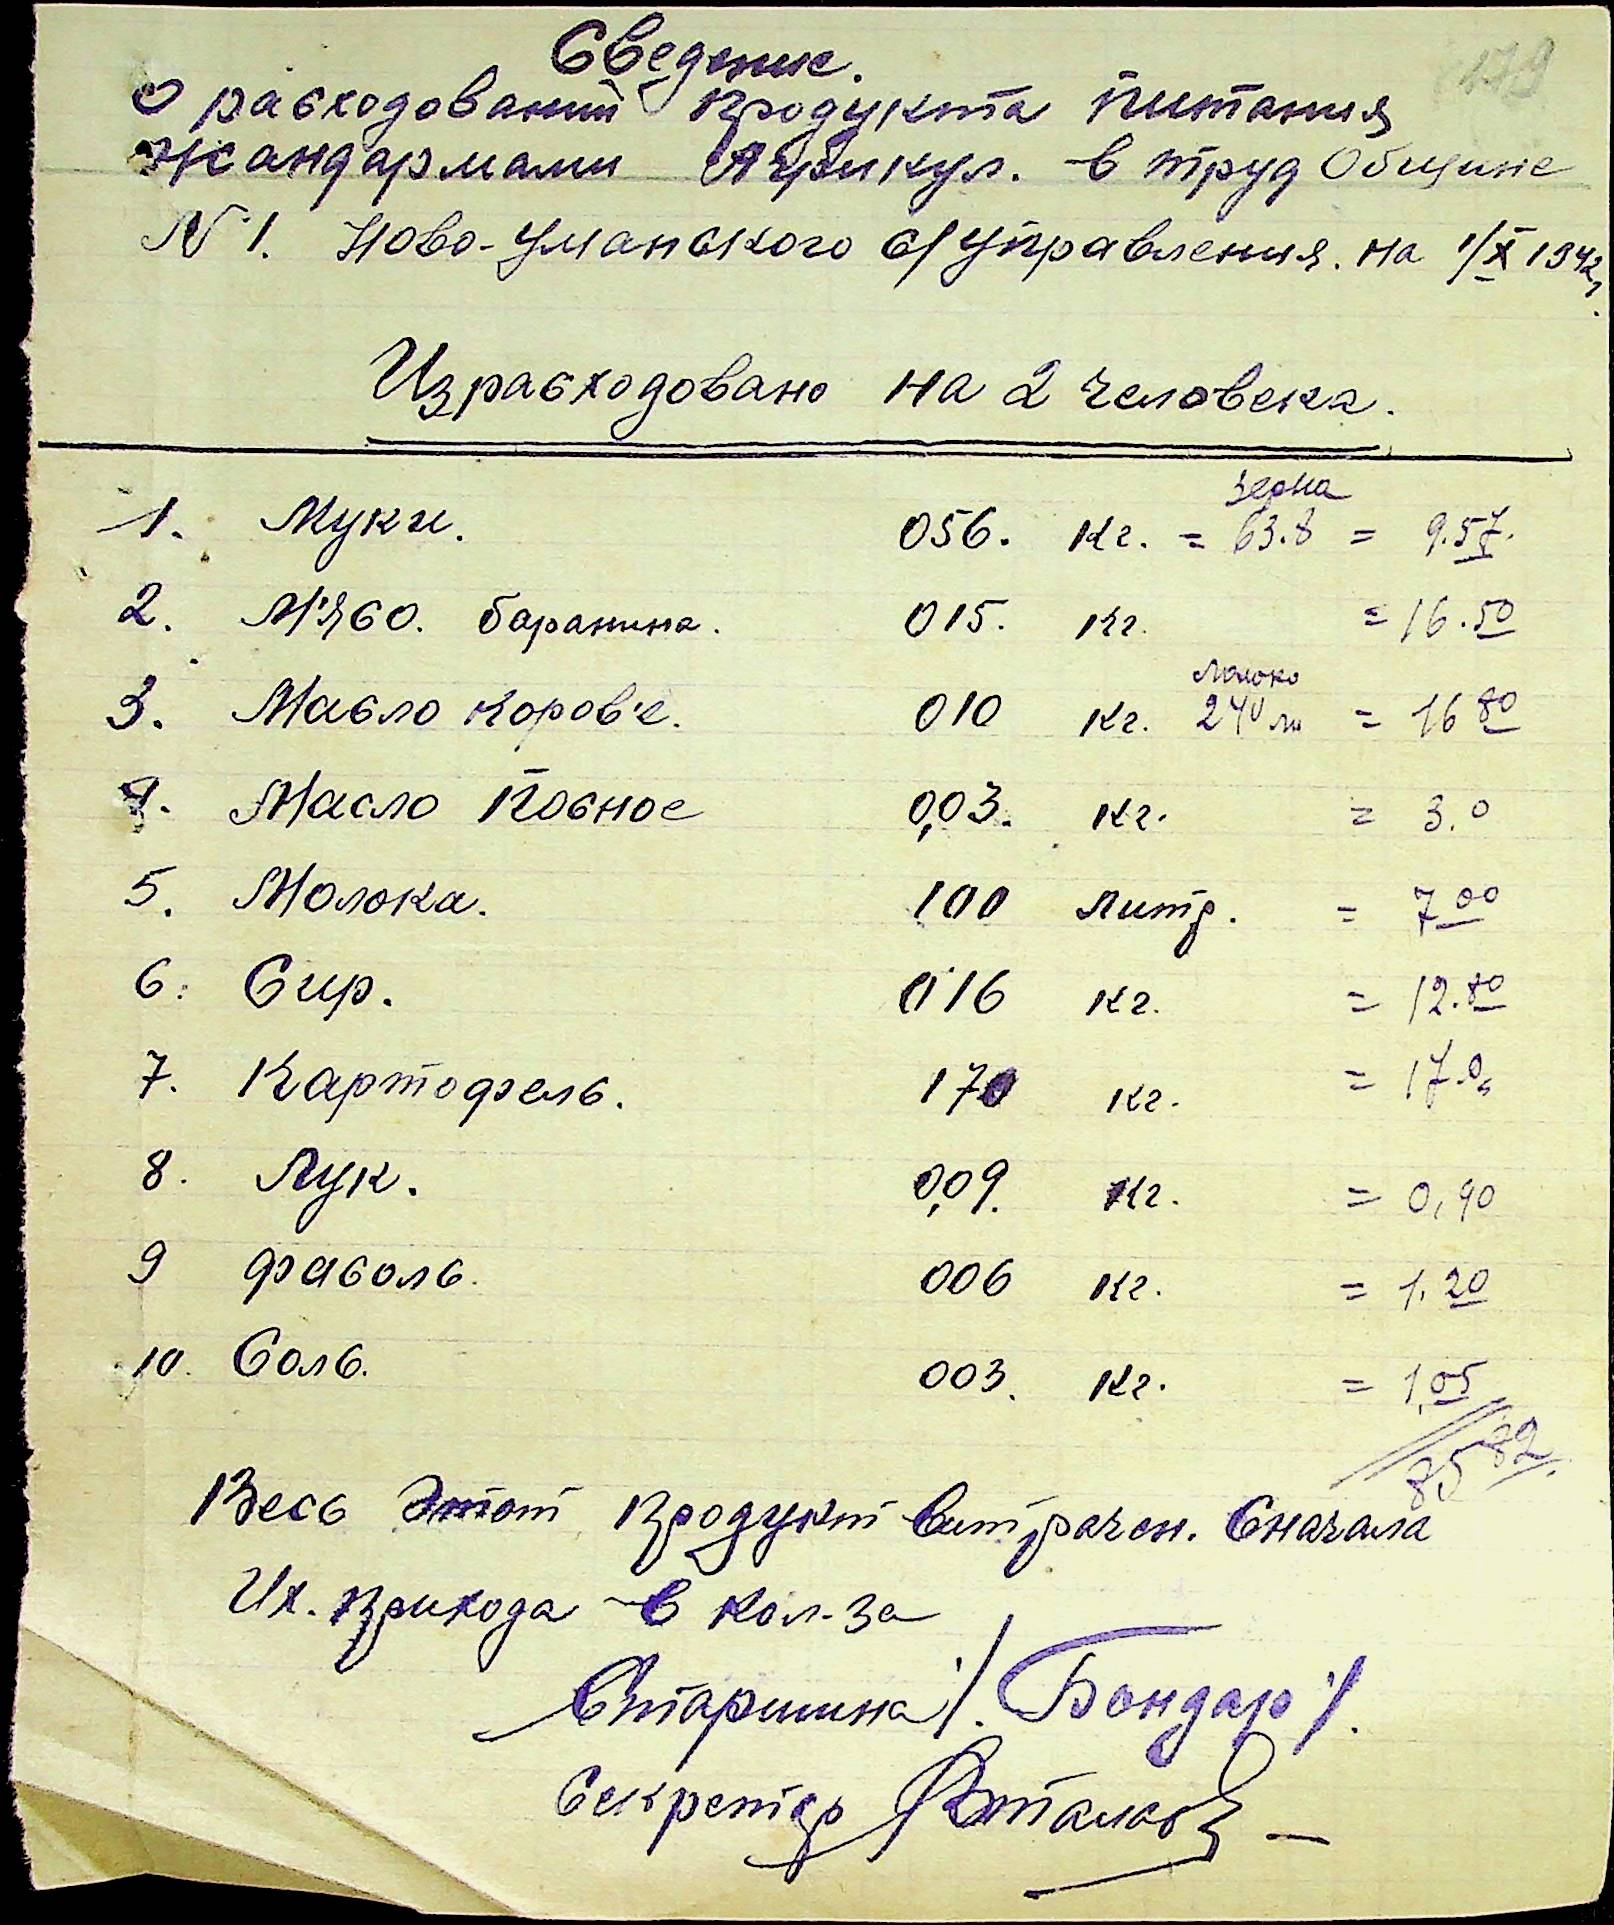 179
Сведение.
О расходований продукта питания
жандармами Агрикул. в труд Общине
№ 1. Ново-Уманского с/управления. на 1/X 1942г.
Израсходовано на 2 человека.
1. Муки. 056. Кг. = зерна 63.8 = 9.57.
2. М'ясо. баранина. 015. Кг. = 16.50
3. Масло коров'е. 010 Кг. молоко 240 л = 16 80
4. Масло Посное 0,03. Кг. = 3.0
5. Молока. 100 литр. = 7 00
6. Сир. 016 Кг. = 12.80
7. Картофель. 170 Кг. = 17.0
8. Лук. 0,09. Кг. = 0,90
9 фасоль. 006 Кг. = 1.20
10. Соль. 003. Кг. = 1,05
85 82
Весь этот продукт витрачен. Сначала
Их. прихода в кол-за
Старшина /. Бондар /.
Секретар